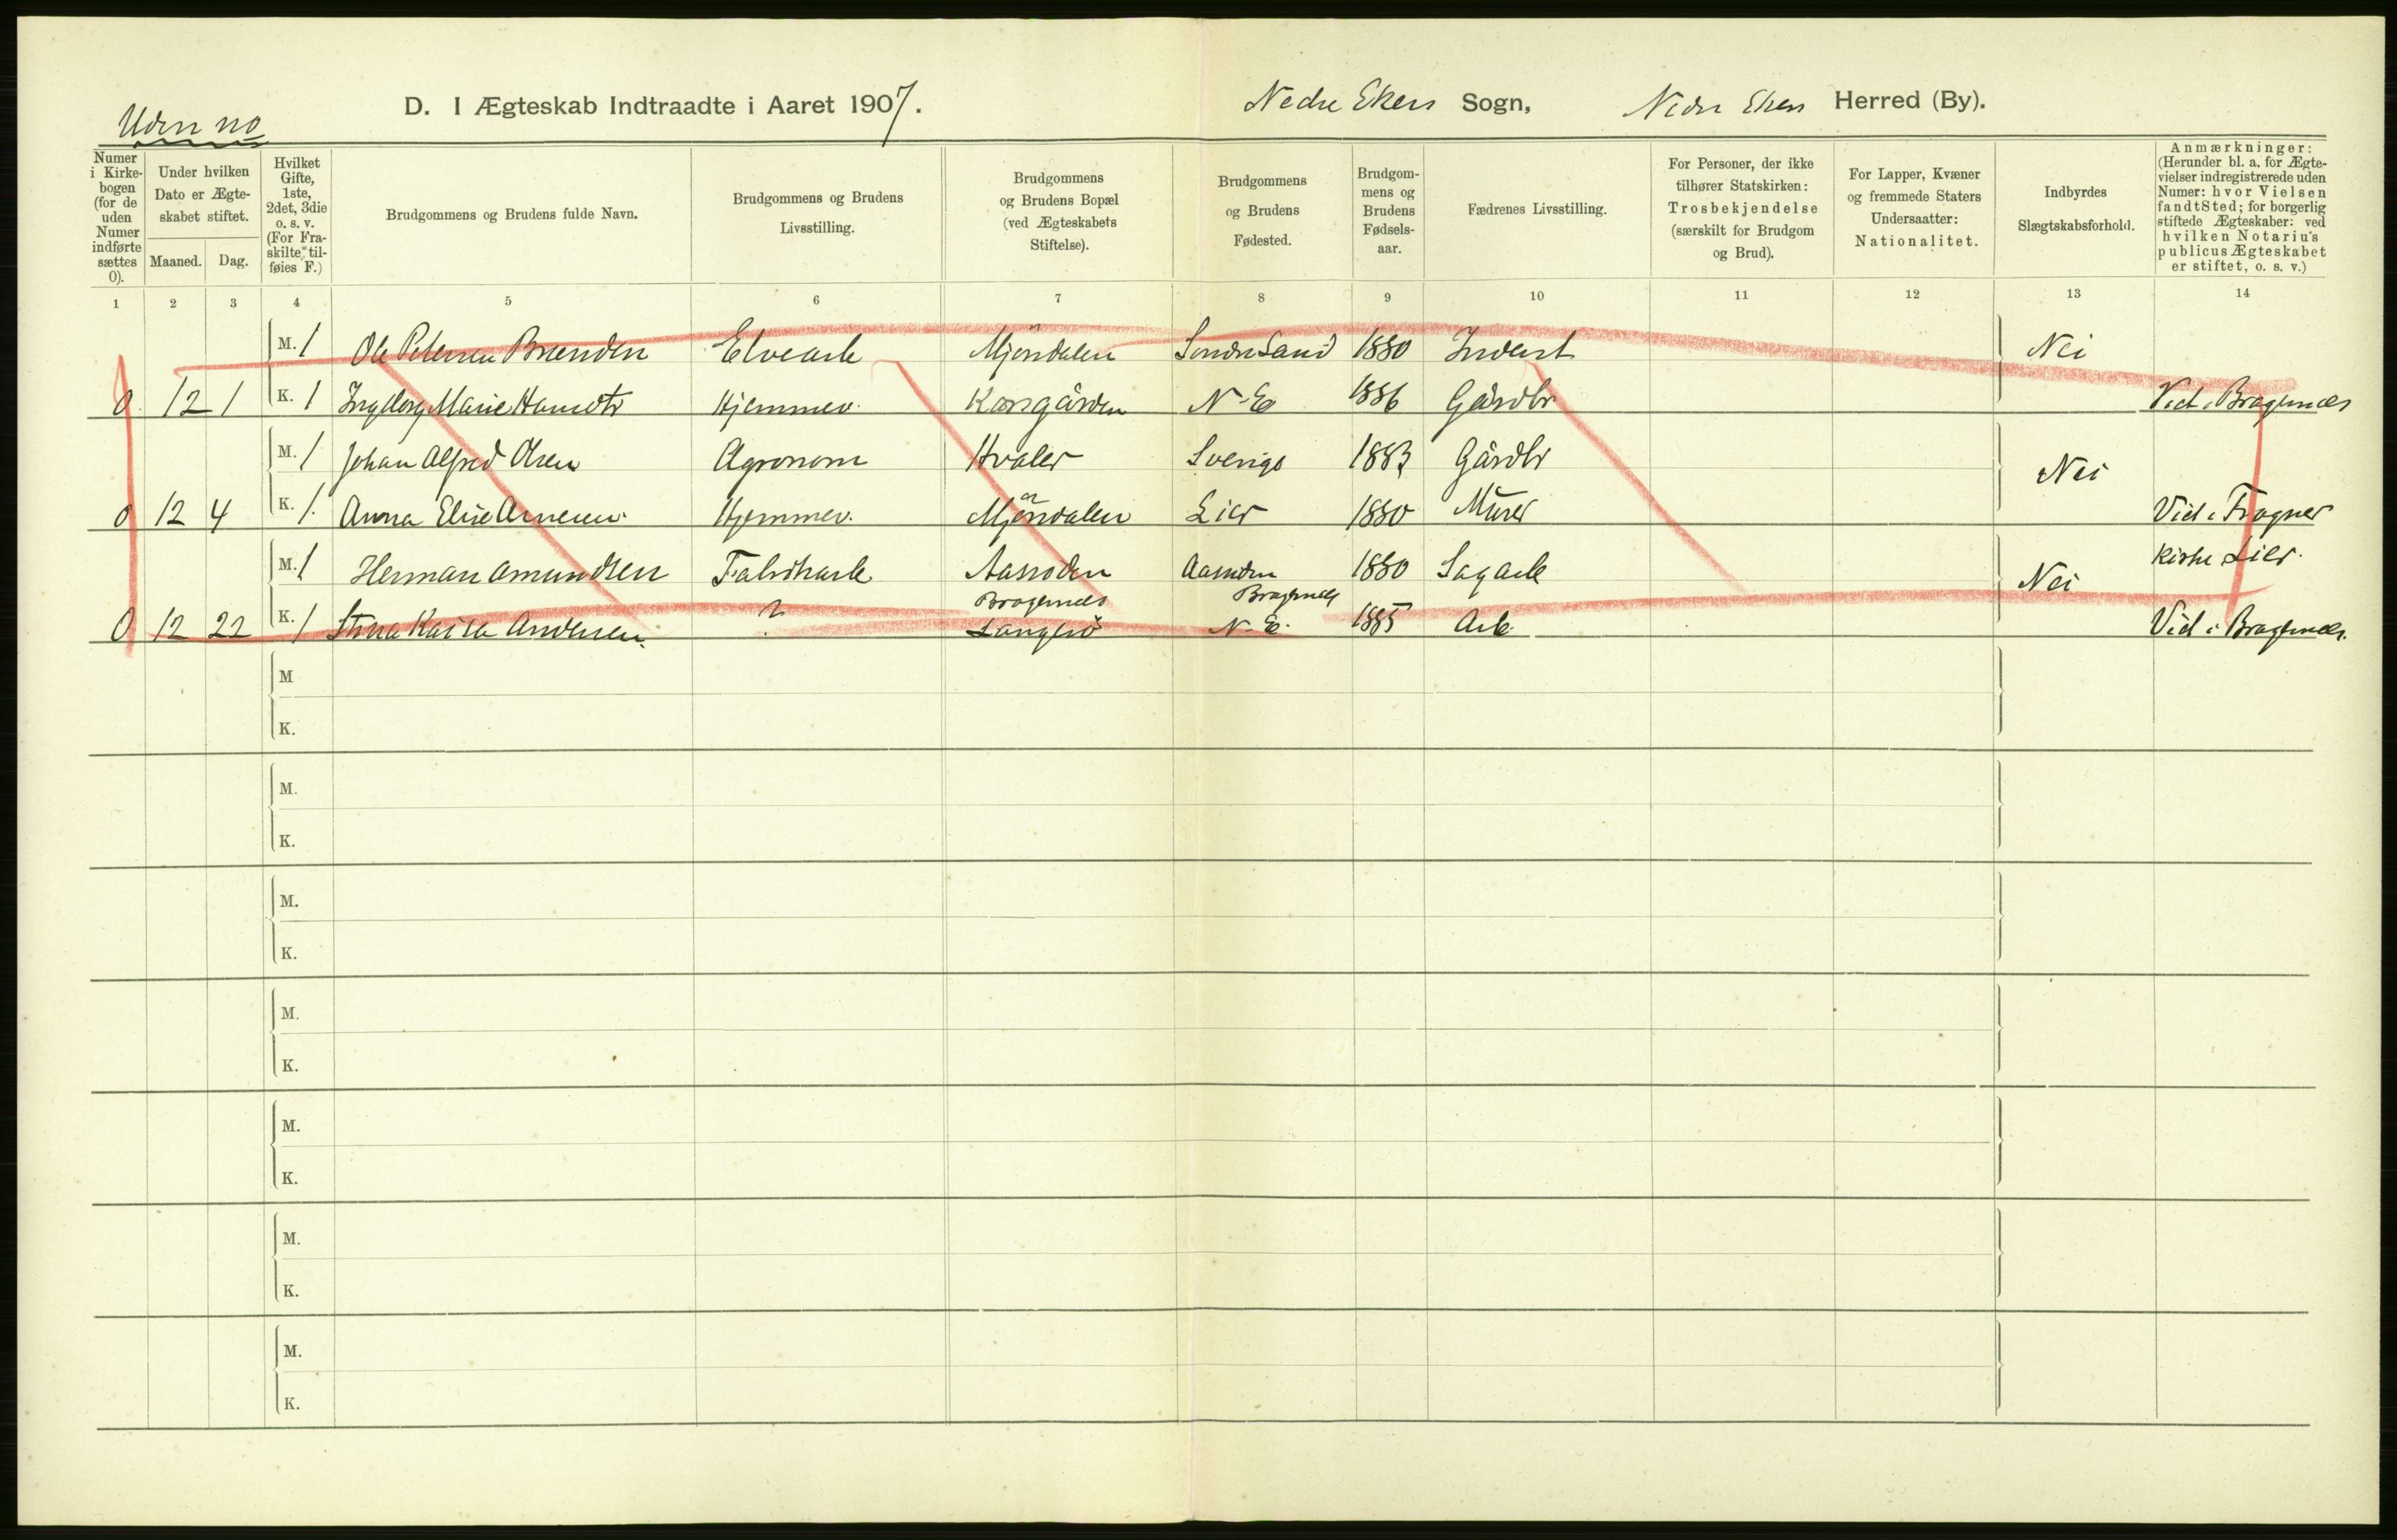 Uden no
D. I Ægteskab Indtraadte i Aaret 1907. Nedre Eker Sogn, Nedre Eker Herred (By).
Numer i Kirkebogen (for de uden Numer indførte sættes 0).
Under hvilken Dato er Ægteskabet stiftet.
Maaned. Dag.
Hvilket Gifte, 1ste, 2det, 3die o. s. v. (For Fraskilte tilføies F.)
Brudgommens og Brudens fulde Navn.
Brudgommens og Brudens Livsstilling.
Brudgommens og Brudens Bopæl (ved Ægteskabets Stiftelse).
Brudgommens og Brudens Fødested.
Brudgommens og Brudens Fødselsaar.
Fædrenes Livsstilling.
For Personer, der ikke tilhører Statskirken: Trosbekjendelse (særskilt for Brudgom og Brud).
For Lapper, Kvæner og fremmede Staters Undersaatter: Nationalitet.
Indbyrdes Slægtskabsforhold.
Anmærkninger: (Herunder bl. a. for Ægtevielser indregistrerede uden Numer: hvor Vielsen fandt Sted; for borgerlig stiftede Ægteskaber: ved hvilken Notarius publicus Ægteskabet er stiftet, o. s. v.)
1 2 3 4 5 6 7 8 9 10 11 12 13 14
M. 1 Ole Petersen Brænden Elvearb Mjøndalen Søndre Sand 1880 Inderst Nei
0 12 1 K. 1 Ingeborg Marie Hansdtr Hjemmev. Korsgården N-E 1886 Gårdbr Vied i Bragernæs
M. 1 Johan Alfred Olsen Agronom Hvaler Sverige 1883 Gårdbr Nei
0 12 4 K. 1. Anna Elise Arnesen Hjemmev. Mjøndalen Lier 1880 Murer Vied i Frogner
Kirke Lier.
M. 1 Herman Amundsen Fabrikarb Aassiden Aassiden 1880 Sagarb Nei
Bragernæs Bragernæs
0 12 22 K. 1 Stina Kaisa Andersen. ? Langløs N-E. 1885 Arb. Vied i Bragernæs.
M
K.
M.
K.
M.
K.
M.
K.
M.
K.
M.
K.
M.
K.